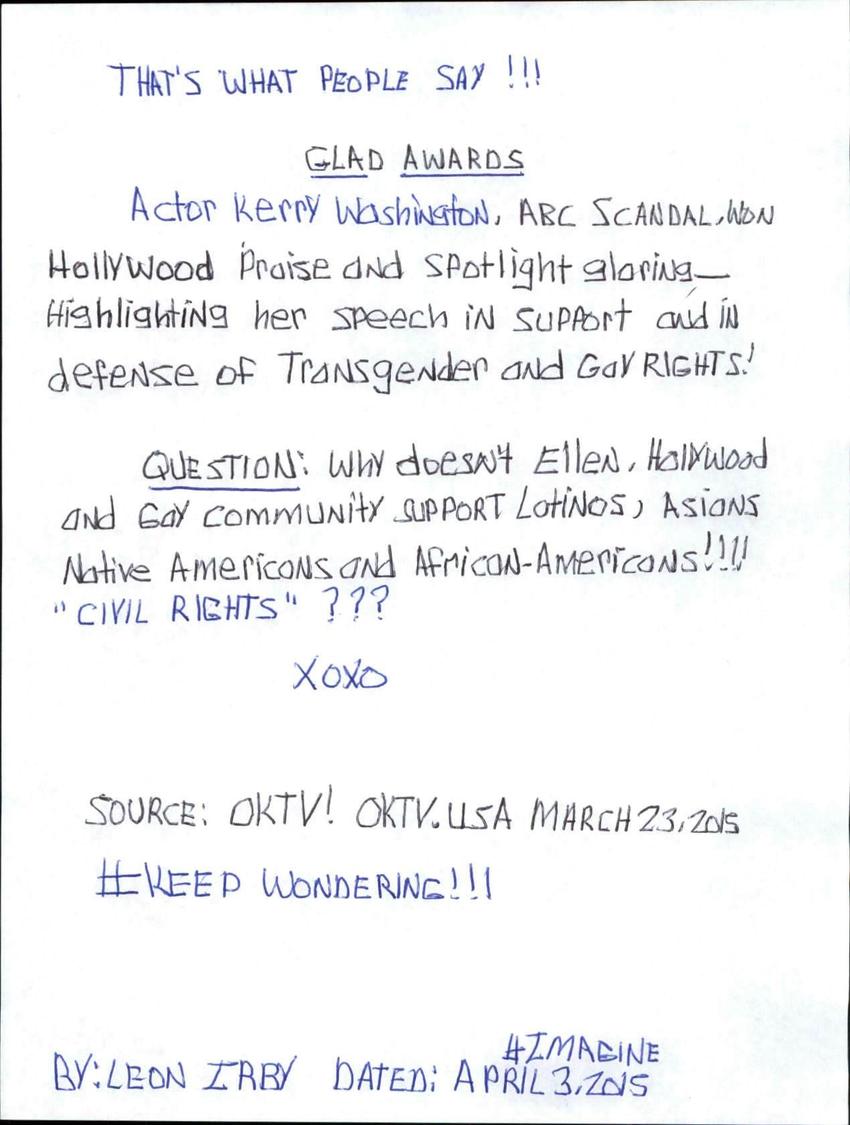 THAT'S WHAT PEOPLE SAY !!!
GLAD AWARDS
Actor Kerry Washington, ABC SCANDAL, WON
Hollywood Praise and spotlight glaring—
Highlighting her speech in support and in
defense of Transgender and Gay RIGHTS!
QUESTION: Why doesn't Ellen, Hollywood
and Gay community support Latinos, Asians
Native Americans and African-Americans!!!!
"CIVIL RIGHTS" ???
XOXO
SOURCE: OKTV! OKTV.USA MARCH 23, 2015
#KEEP WONDERING!!!
#IMAGINE
BY: LEON IRBY DATED: APRIL 3, 2015